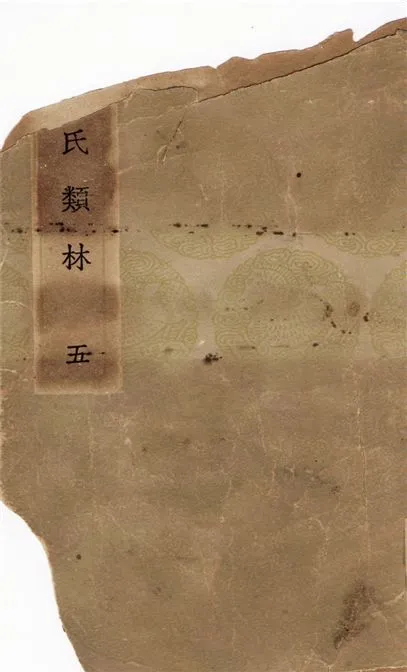 氏類林 五